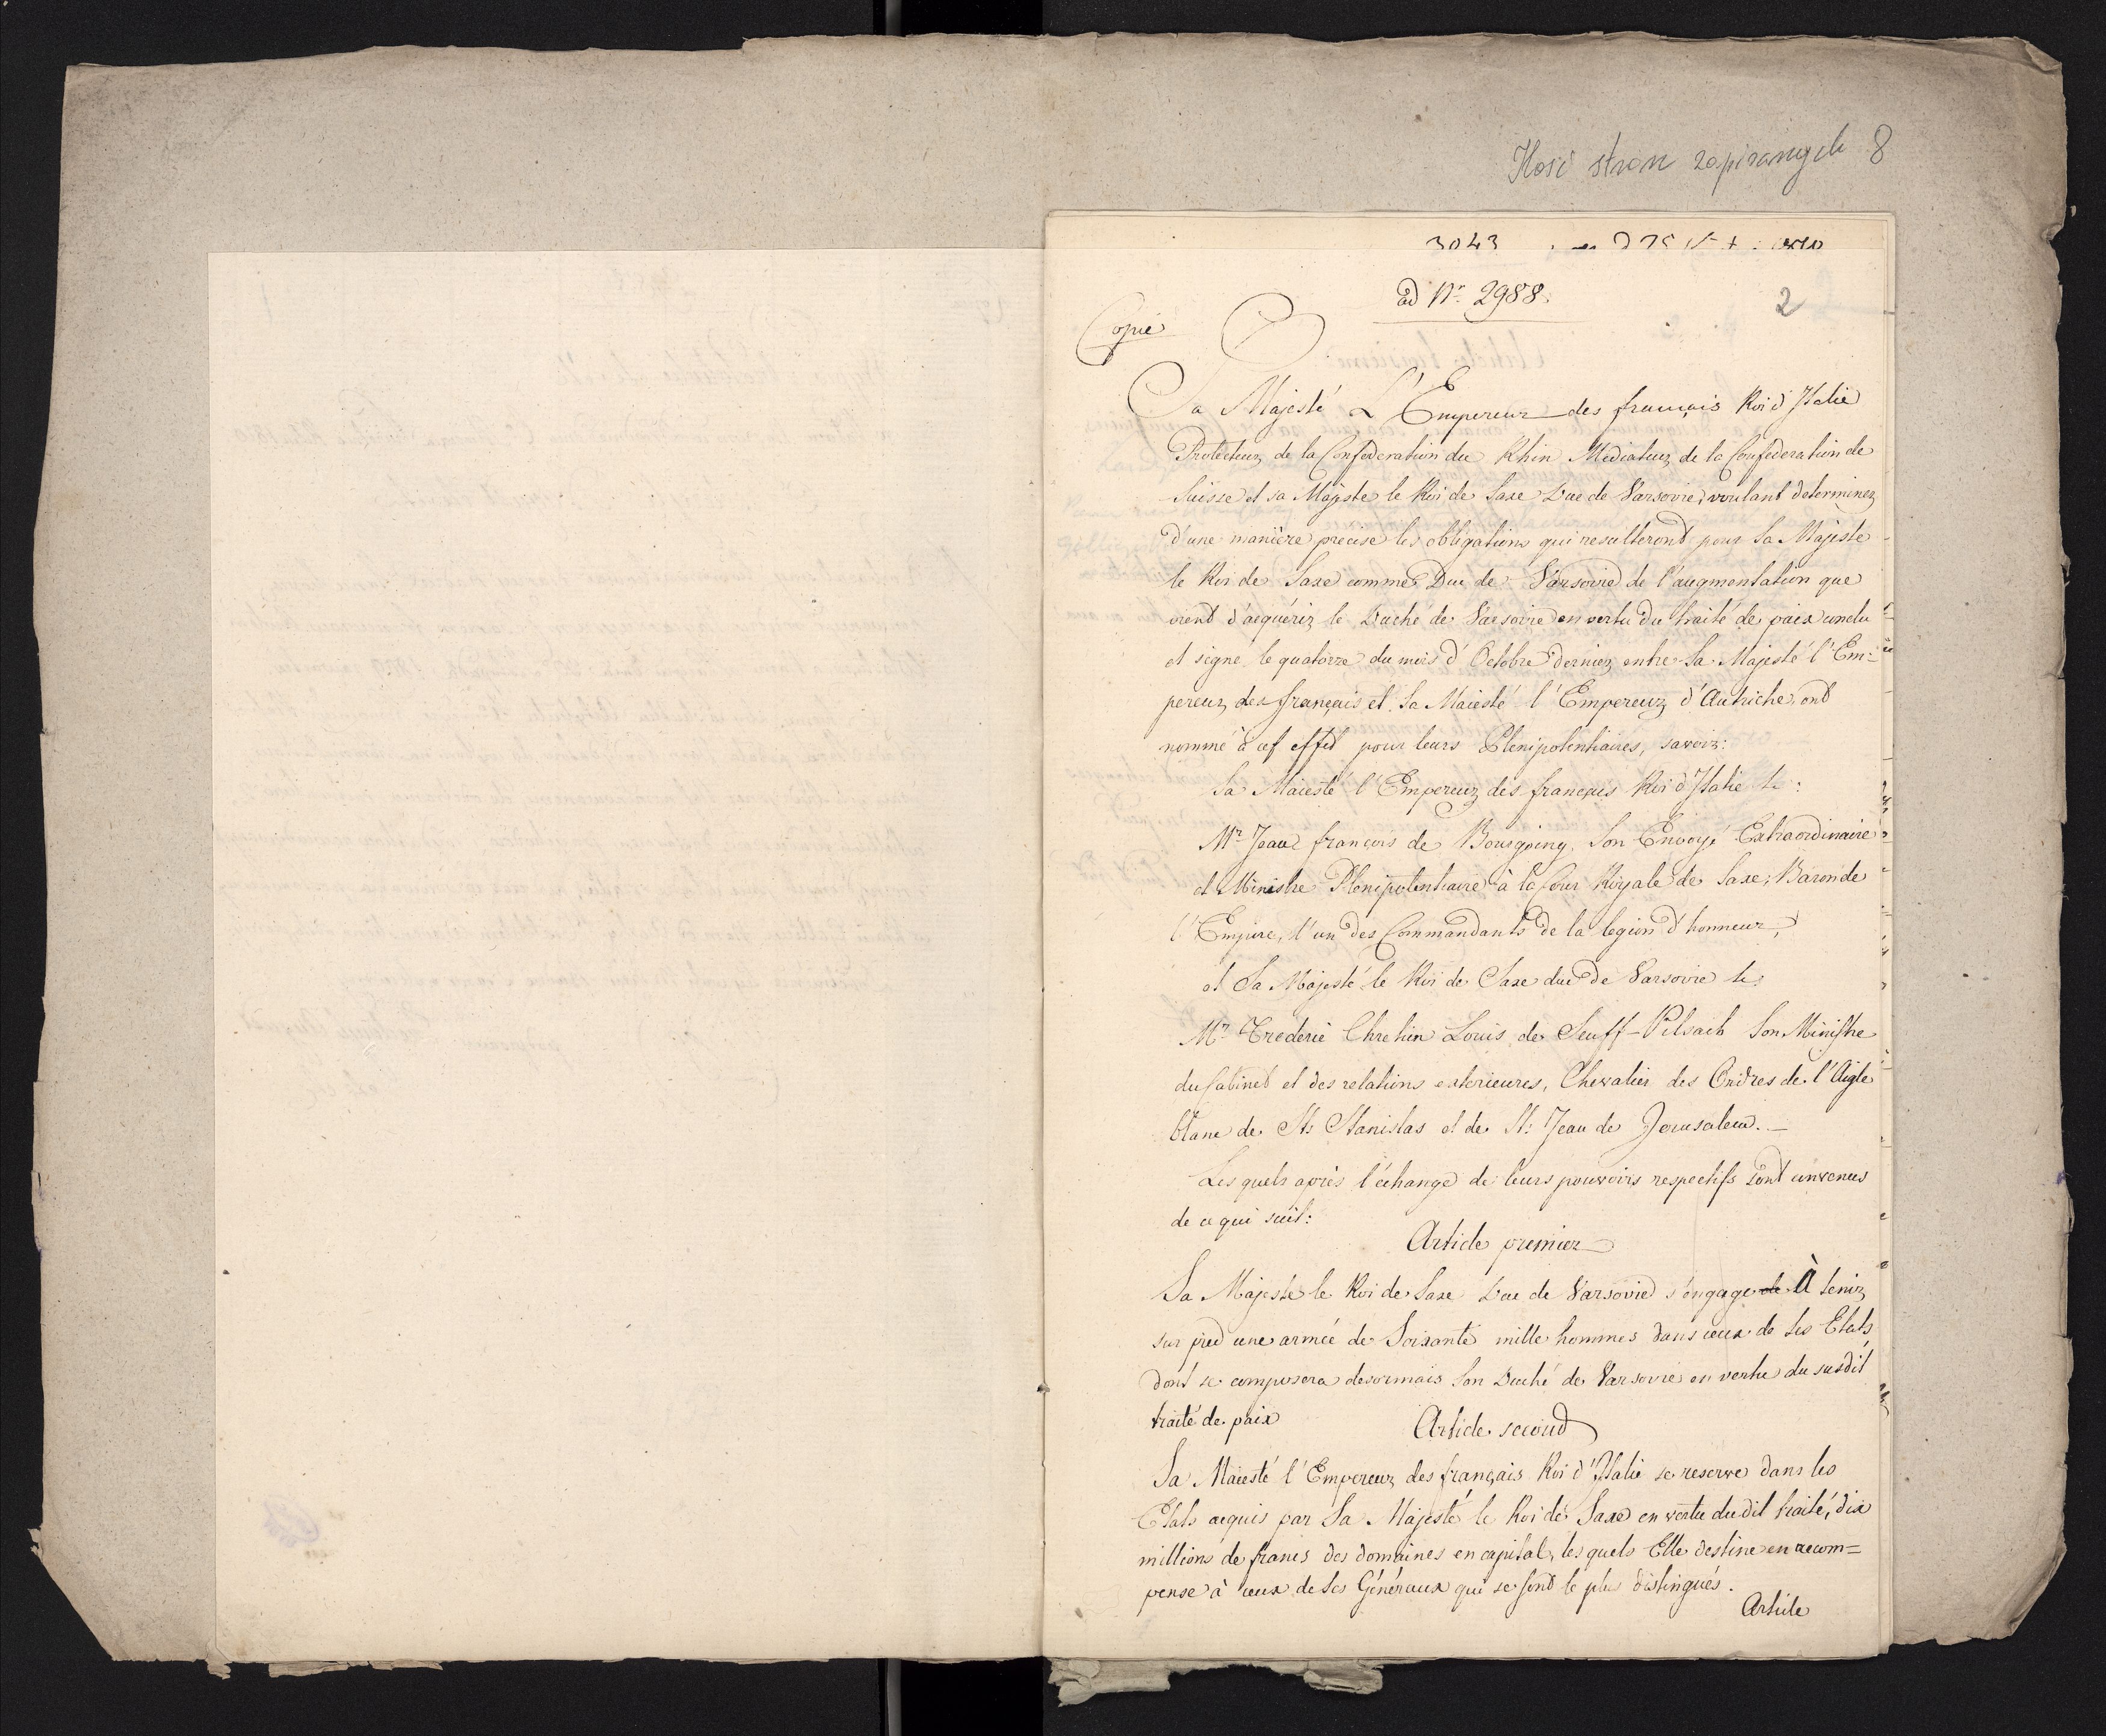 Ilość stron zapisanych 8
3043
ad Nr. 2988.
2
Copie
Sa Majesté L'Empereur des français Roi d'Italie
Protecteur de la Confederation du Rhin Mediateur de la Confederation de
Suisse et sa Majeste le Roi de Saxe Duc de Varsovie, voulant determiner
d'une manière precise les obligations qui resulteront pour Sa Majesté
le Roi de Saxe comme Duc de Varsovie de l'augmentation que
vient d'acquérir le Duché de Varsovie en vertu du traité de paix conclu
et signé le quatorze du mois d'Octobre dernier entre Sa Majesté l'Em=
pereur des français et Sa Maiesté l'Empereur d'Autriche, ont
nommé à cet effet pour leurs Plenipotentiaires, savoir:
Sa Maiesté l'Empereur des français Roi d'Italie le:
Mr Jean françois de Bourgoing, Son Envoyé Extraordinaire
et Ministre Plenipotentiaire à la Cour Royale de Saxe, Baron de
l'Empire, l'un des Commandants de la legion d'honneur,
et Sa Majesté le Roi de Saxe duc de Varsovie le:
Mr Frederic Chretien Louis de Senff-Pilsach Son Ministre
du Cabinet et des relations exterieures, Chevalier des Ordres de l'Aigle
blanc de St: Stanislas et de St: Jean de Jerusalem. —
Les quels après l'échange de leurs pouvoirs respectifs sont convenus
de ce qui suit:
Article premier
Sa Majesté le Roi de Saxe Duc de Varsovie s'engage de À tenir
sur pied une armée de Soixante mille hommes dans ceux de Ses Etats
dont se composera desormais Son Duché de Varsovie en vertu du susdit
traité de paix
Article second
Sa Maiesté l'Empereur des français Roi d'Italie se reserve dans les
Etats acquis par Sa Majesté le Roi de Saxe en vertu du dit traité, dix
millions de francs des domaines en capital, les quels Elle destine en recom=
pense à ceux de Ses Généraux qui se sont le plus distingués.
Article